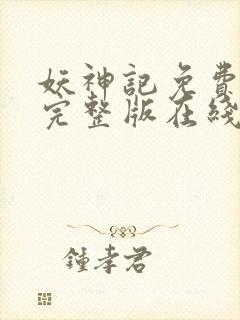 妖神記免費
完整版在綫
鍾孝君